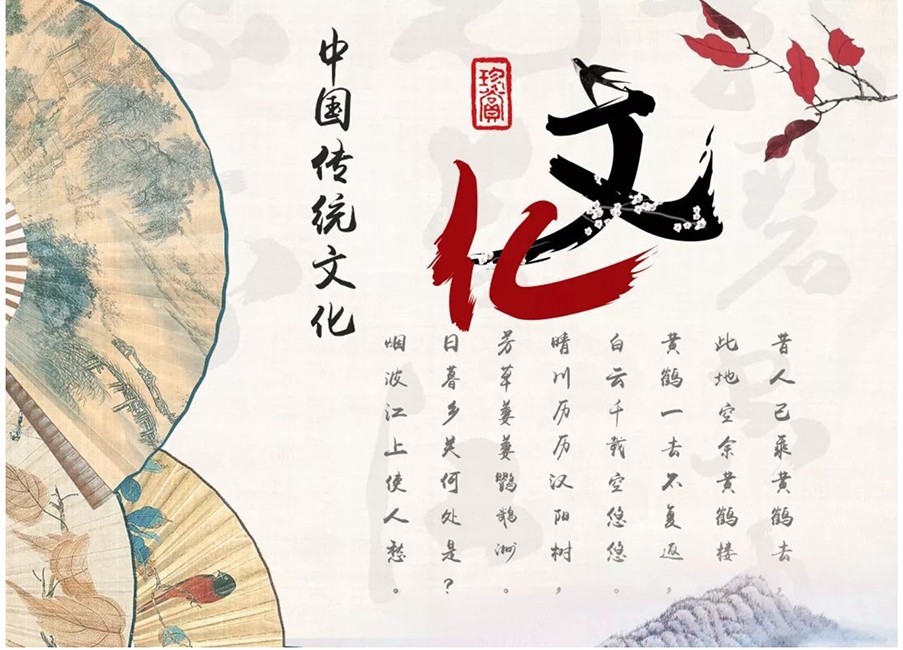 中国传统文化
珍賞
文化
昔人已乘黄鹤去，
此地空余黄鹤楼。
黄鹤一去不复返，
白云千载空悠悠。
晴川历历汉阳树，
芳草萋萋鹦鹉洲。
日暮乡关何处是？
烟波江上使人愁。